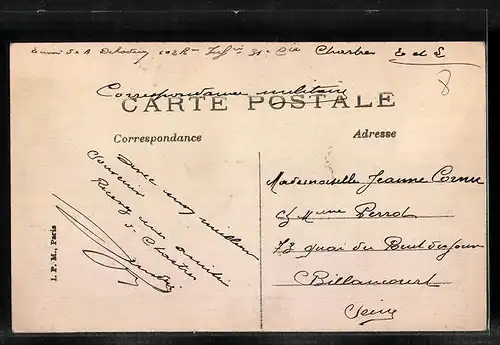 Envoi de A 102e R Inf 31e Cie Chartres E et L
8
Correspondance militaire
CARTE POSTALE
Correspondance
Adresse
avec mes meilleurs
Souvenirs
Recevez une amitié
de Chartres
Mademoiselle Jeanne Cornu
Ch Mme Perrot
73 quai du Point du Jour
Billancourt
Seine
I. P. M., Paris